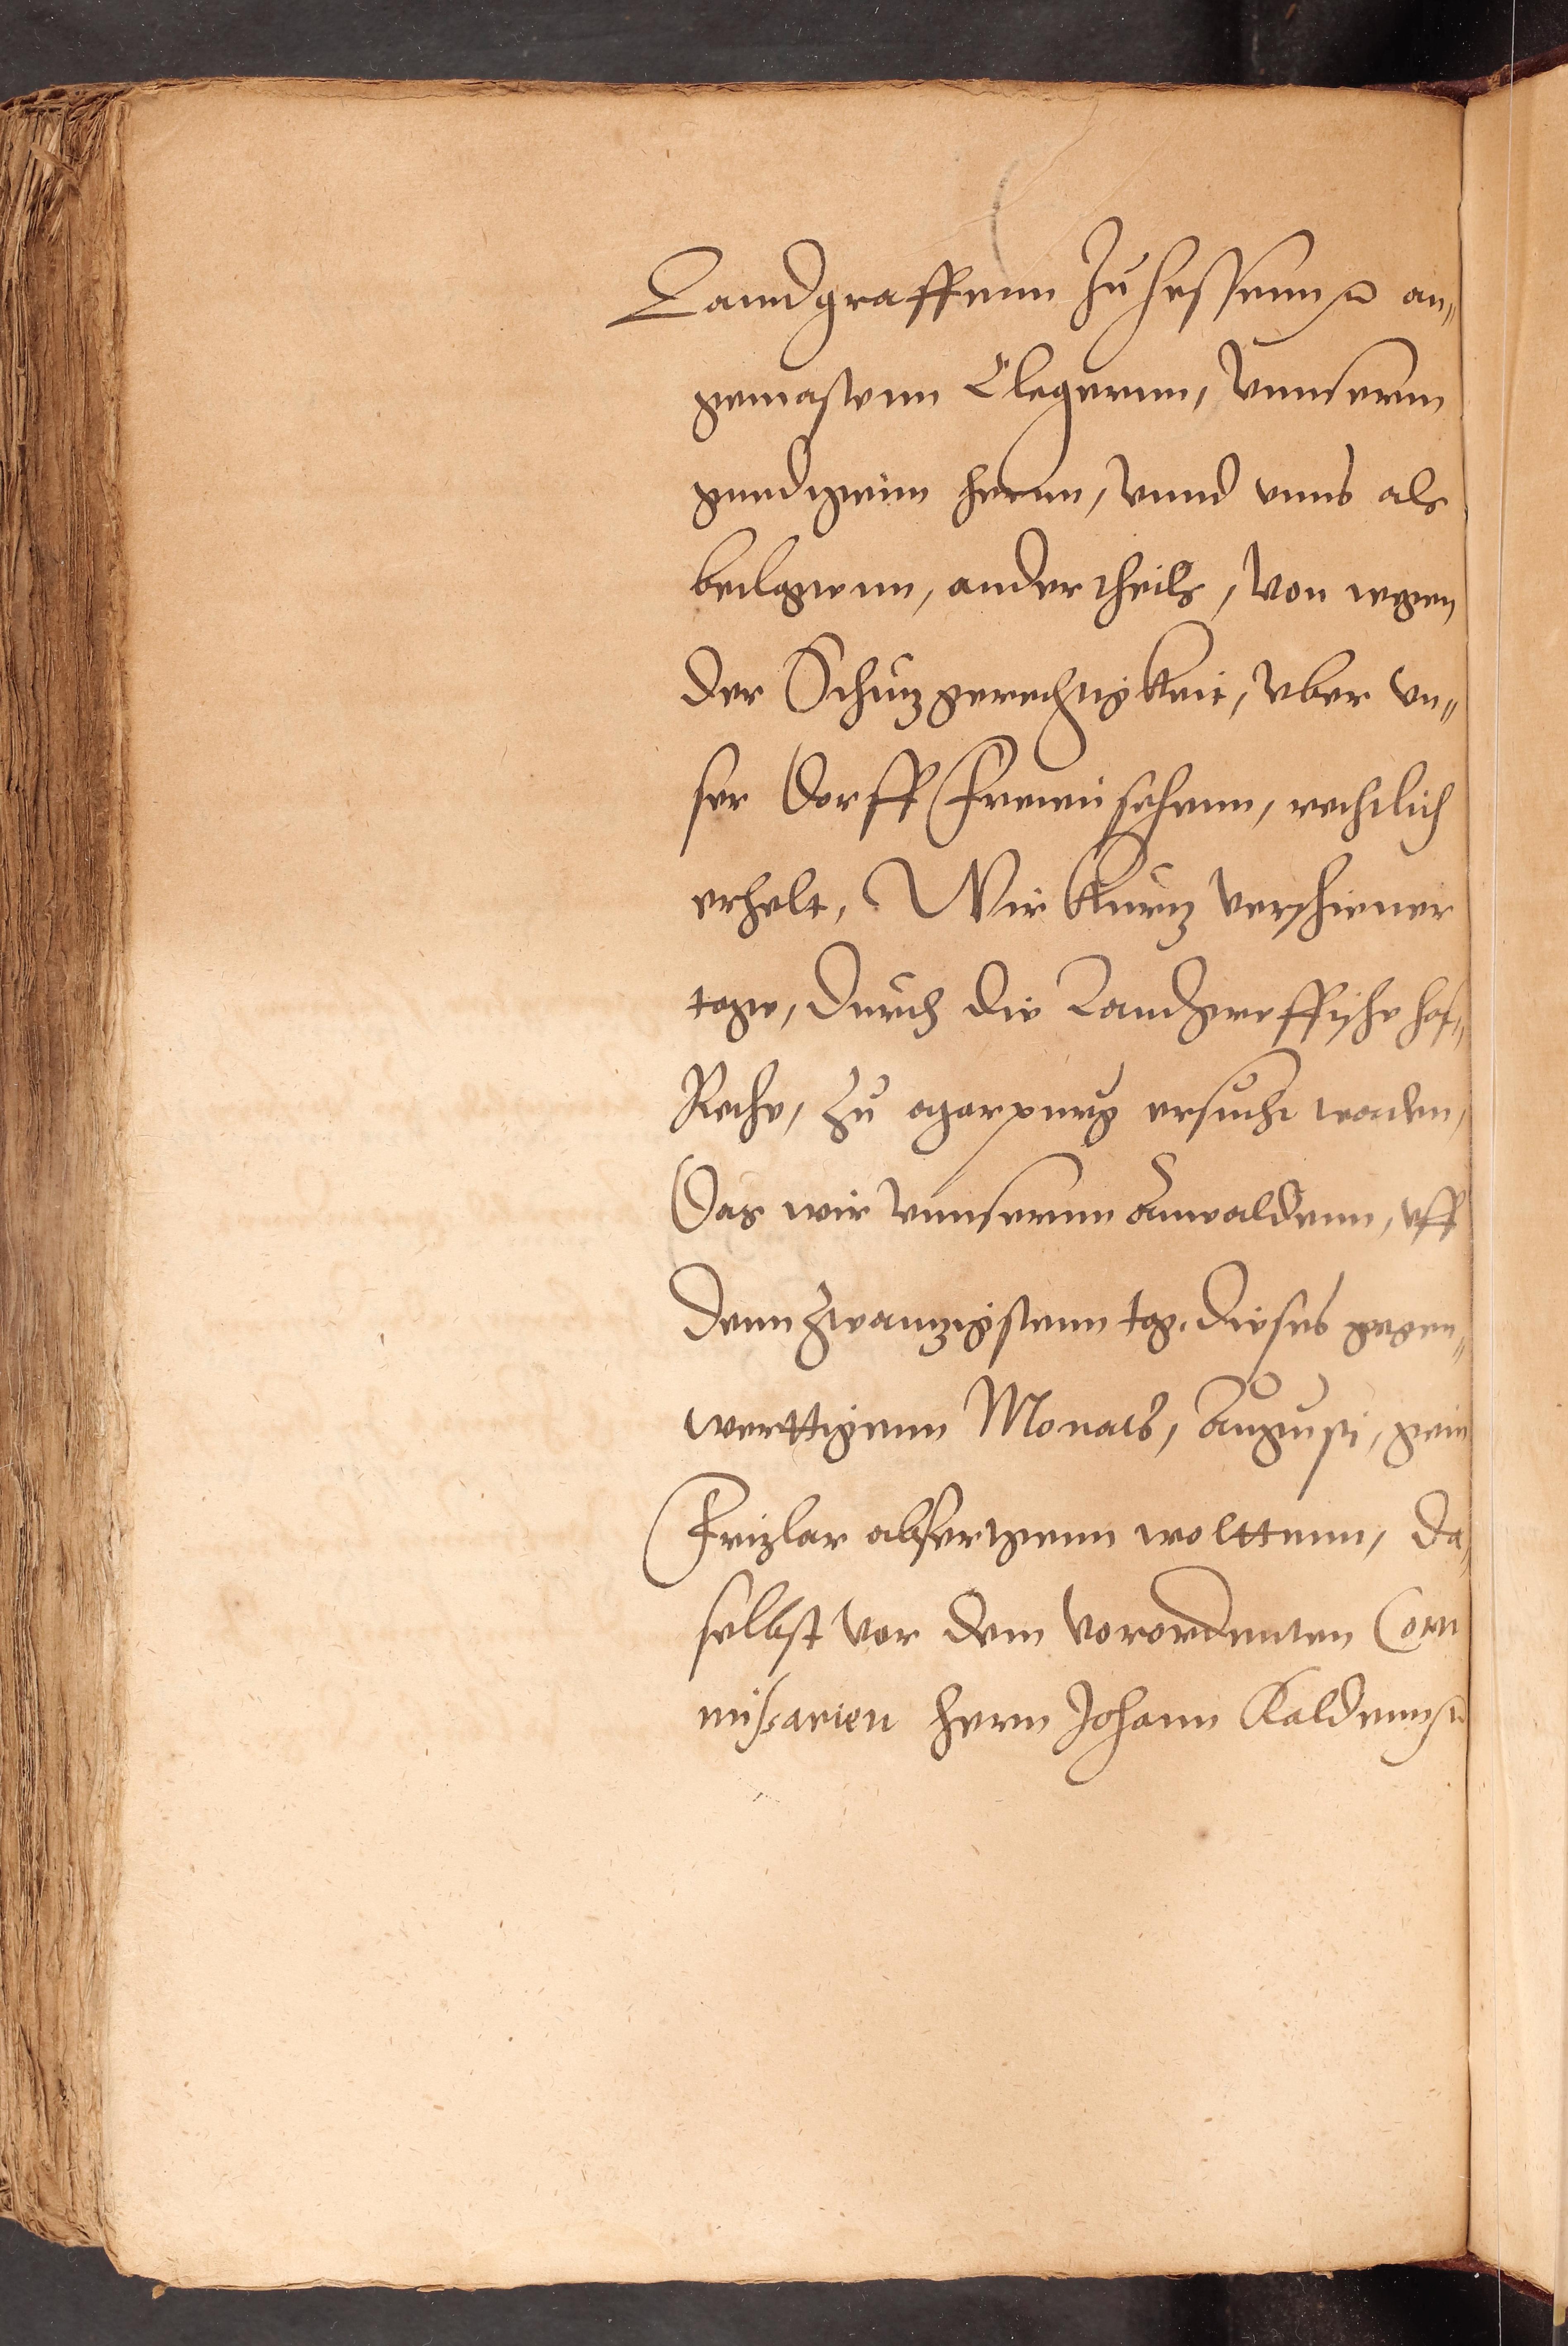 Lanndgraffenn zu Hessenn etc. an„
gemastenn Clegernn, Vnnsernn
gnedigenn hernn, vnnd vnns als
beclagtenn, andertheils, von wegen
der Schutzgerechtigkeit, vber vn„
ser Dorff Freienschenn, rechtlich
erhelt, Wir kurtz verschiener
tage, durch die Landgreffische hof„
Rethe, zu Margpurg ersucht worden,
Das wir vnnserenn Anwaldenn, vff
denn zwantzigstenn tag, dieses gegen„
werttigenn Monats, Augusti, gein
Fritzlar abfertigenn wolttenn, da„
selbst vor dem verordenten Com
missarien hern Johann Kaldenn